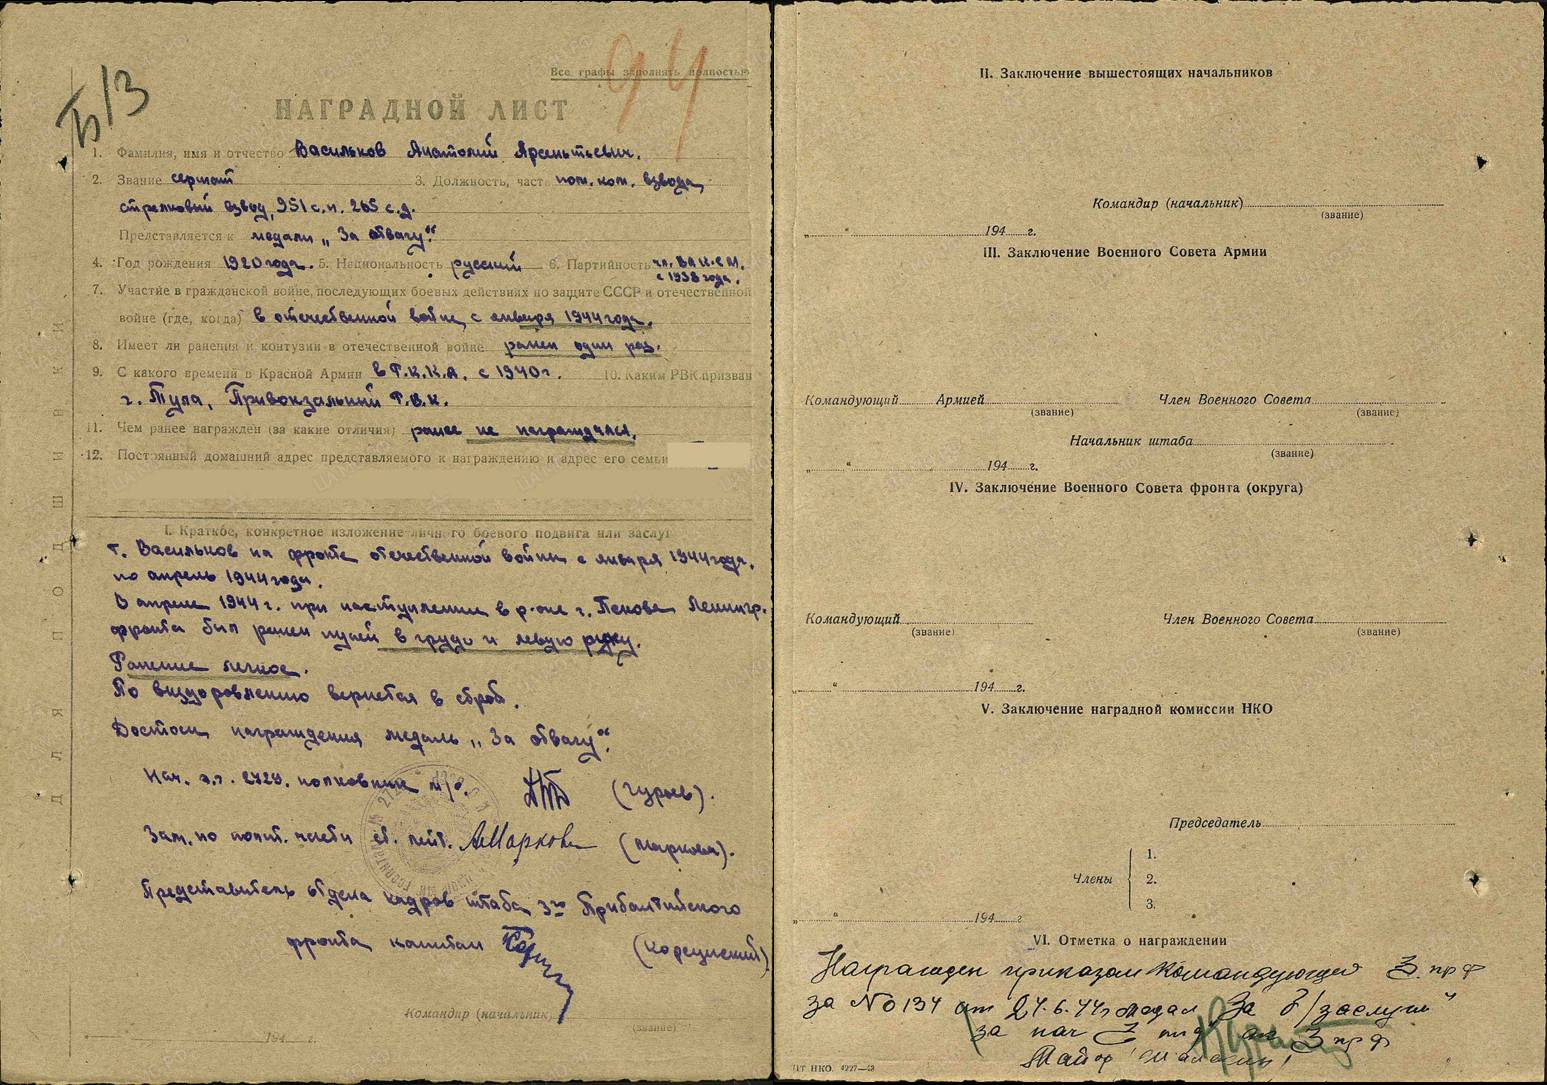 94
Б/З
Все графы заполнять полностью
НАГРАДНОЙ ЛИСТ
1. Фамилия, имя и отчество Васильков Анатолий Арсентьевич.
2. Звание сержант 3. Должность, часть пом. ком. взвода,
стрелковый взвод, 951 с.п. 265 с.д.
Представляется к медали „За отвагу“.
4. Год рождения 1920 года. 5. Национальность русский 6. Партийность чл. ВЛКСМ.
с 1938 года.
7. Участие в гражданской войне, последующих боевых действиях по защите СССР и отечественной
войне (где, когда) в отечественной войне, с января 1944 года.
8. Имеет ли ранения и контузии в отечественной войне ранен один раз.
9. С какого времени в Красной Армии в Р.К.К.А. с 1940 г. 10. Каким РВК призван
г. Тула, Привокзальный Р.В.К.
11. Чем ранее награжден (за какие отличия) ранее не награждался.
12. Постоянный домашний адрес представляемого к награждению и адрес его семьи
I. Краткое, конкретное изложение личного боевого подвига или заслуг
т. Васильков на фронте отечественной войны с января 1944 года.
по апрель 1944 года.
В апреле 1944 г. при наступлении в р-оне г. Пскова Ленингр.
фронта был ранен пулей в грудь и левую руку.
Ранение легкое.
По выздоровлению вернется в строй.
Достоин награждения медаль „За отвагу“.
Нач. э.г. 2729. полковник м/с. (Гурьев).
Зам. по полит. части ст. лейт. АМаркова (Маркова).
Представитель отдела кадров штаба 3го Прибалтийского
фронта капитан
Командир (начальник)
(звание)
194 г.
ДЛЯ ПОДШИВКИ
II. Заключение вышестоящих начальников
Командир (начальник)
(звание)
„ “ 194 г.
III. Заключение Военного Совета Армии
Командующий Армией Член Военного Совета
(звание) (звание)
Начальник штаба
(звание)
„ “ 194 г.
IV. Заключение Военного Совета фронта (округа)
Командующий Член Военного Совета
(звание) (звание)
„ “ 194 г.
V. Заключение наградной комиссии НКО
Председатель
1.
Члены 2.
3.
„ “ 194 г
VI. Отметка о награждении
Награжден приказом Командующего 3. пр ф
за № 0134 от 24.6.44 г медал „За б/заслуги“
за нач 3 пр ф
Майор